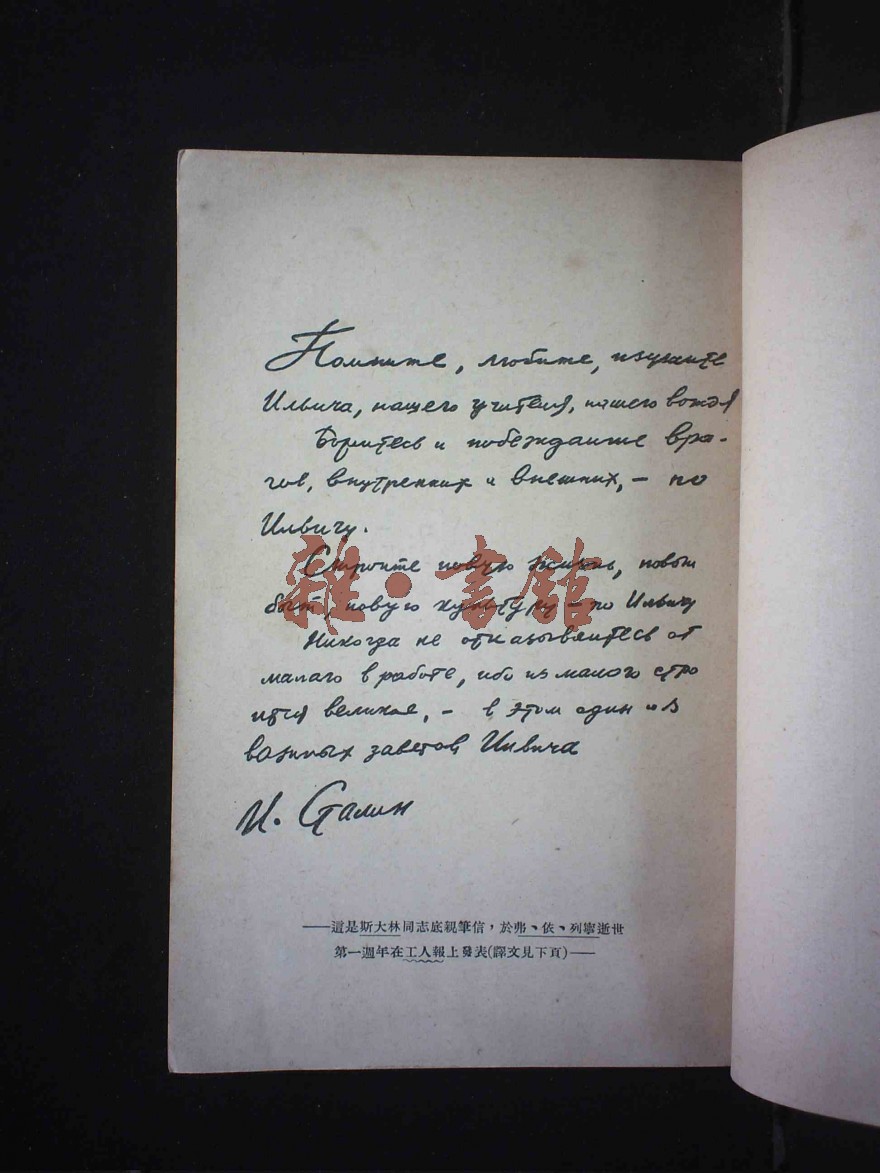 Помните, любите, изучайте
Ильича, нашего учителя, нашего вождя
Боритесь и побеждайте вра-
гов, внутренних и внешних, – по
Ильичу.
Стройте новую жизнь, новый
быт, новую культуру – по Ильичу
Никогда не отказывайтесь от
малого в работе, ибо из малого стро
ится великое, – в этом один из
важных заветов Ильича
И. Сталин
雜·書館
——這是斯大林同志底親筆信，於弗、依、列寧逝世
第一週年在工人報上發表(譯文見下頁)——